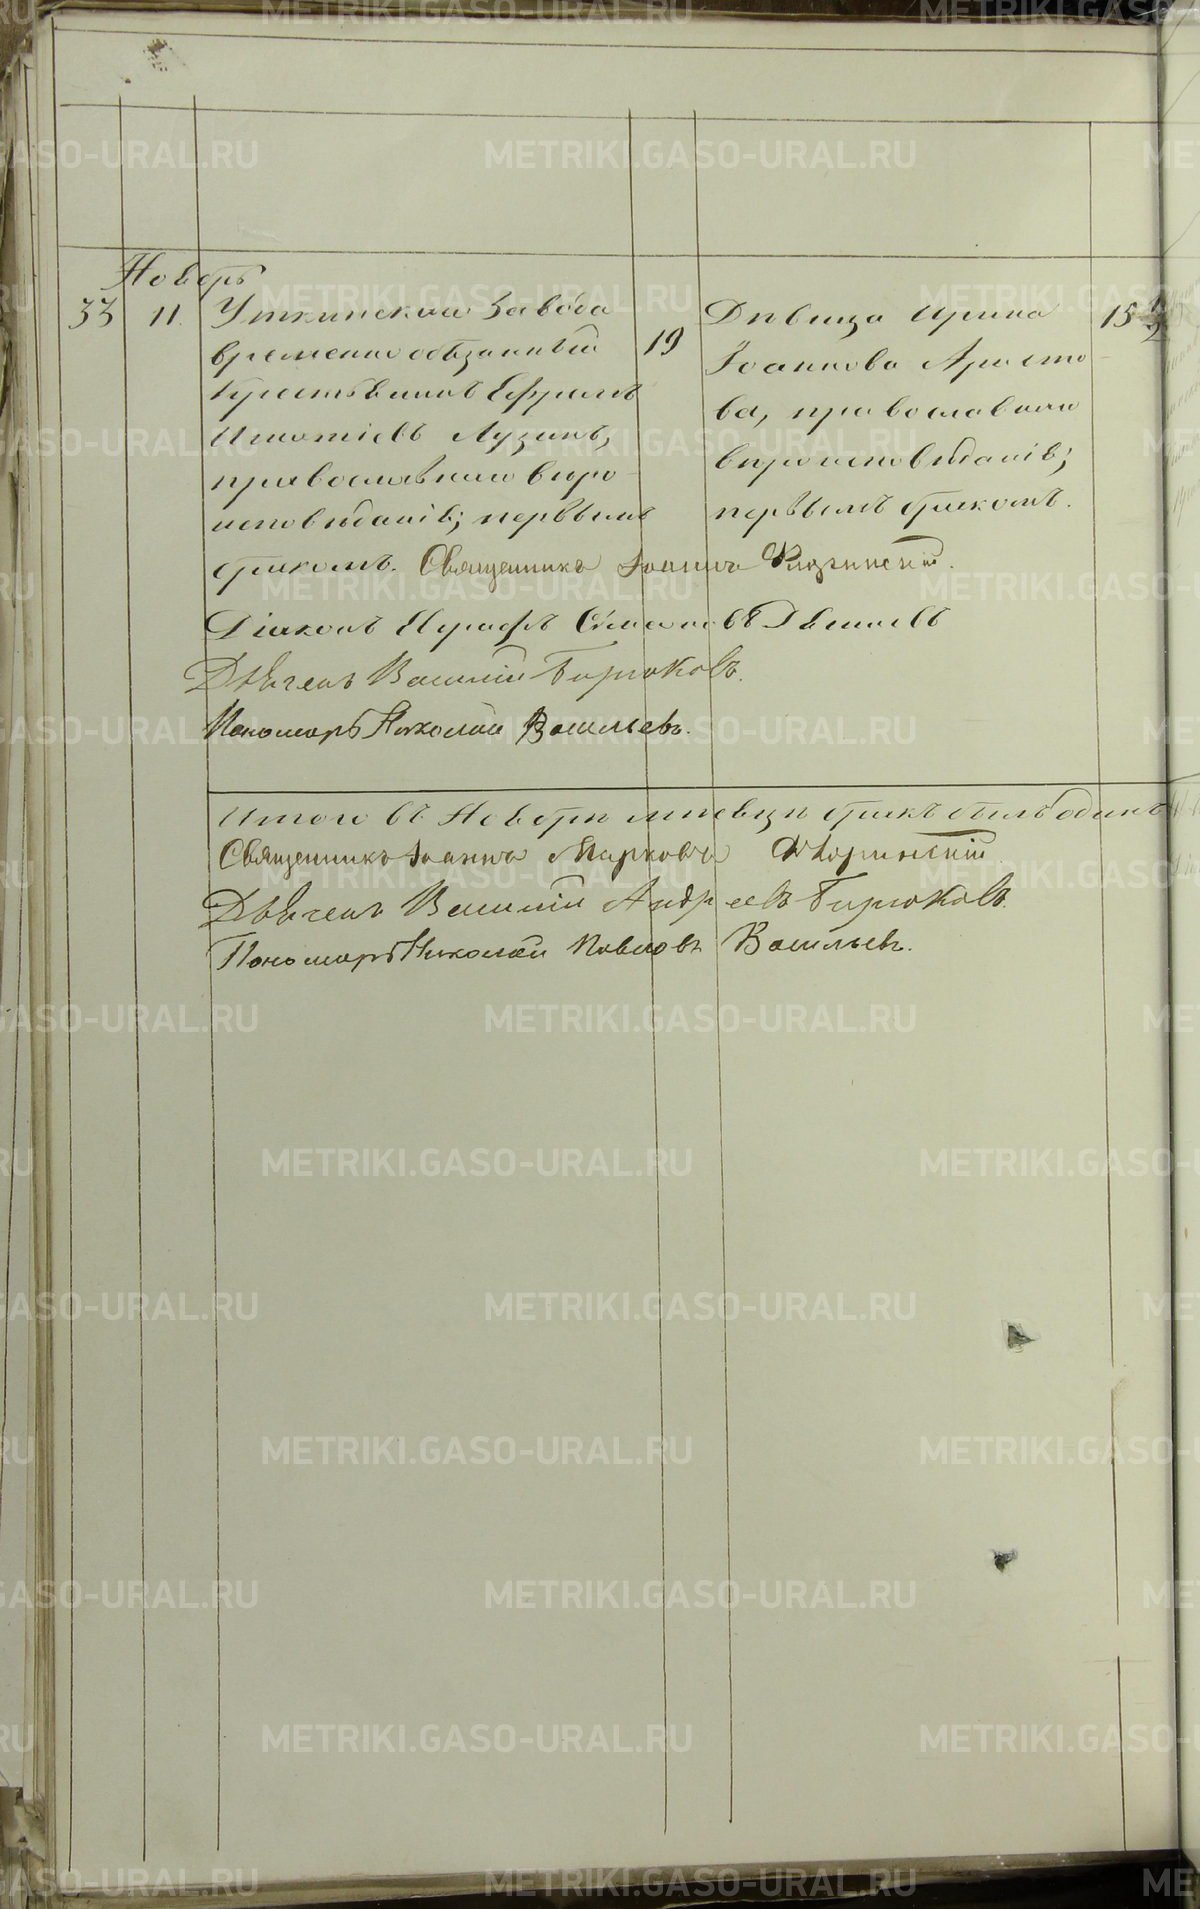 Ноябрь
33 11. Уткинскаго Завода
временно обязанный
19
крестьянинъ Ефремъ
Игнатіевъ Лузинъ,
православнаго вѣро-
исповѣданія; первымъ
бракомъ.
Дѣвица Ирина 15 1/2
Іоаннова Аристо
ва, православнаго
вѣроисповѣданія;
первымъ бракомъ.
Священникъ Іоаннъ Флоринскій.
Діаконъ Евграфъ Симеоновъ
Дьячекъ Василій Бирюковъ.
Пономарь Николай Васильевъ.
Итого въ Ноябрѣ мѣсяцѣ бракъ былъ одинъ
Священникъ Іоаннъ Марковъ Флоринскій
Дьячекъ Василій Андреевъ Бирюковъ.
Пономарь Николай Павловъ Васильевъ.
METRIKI.GASO-URAL.RU